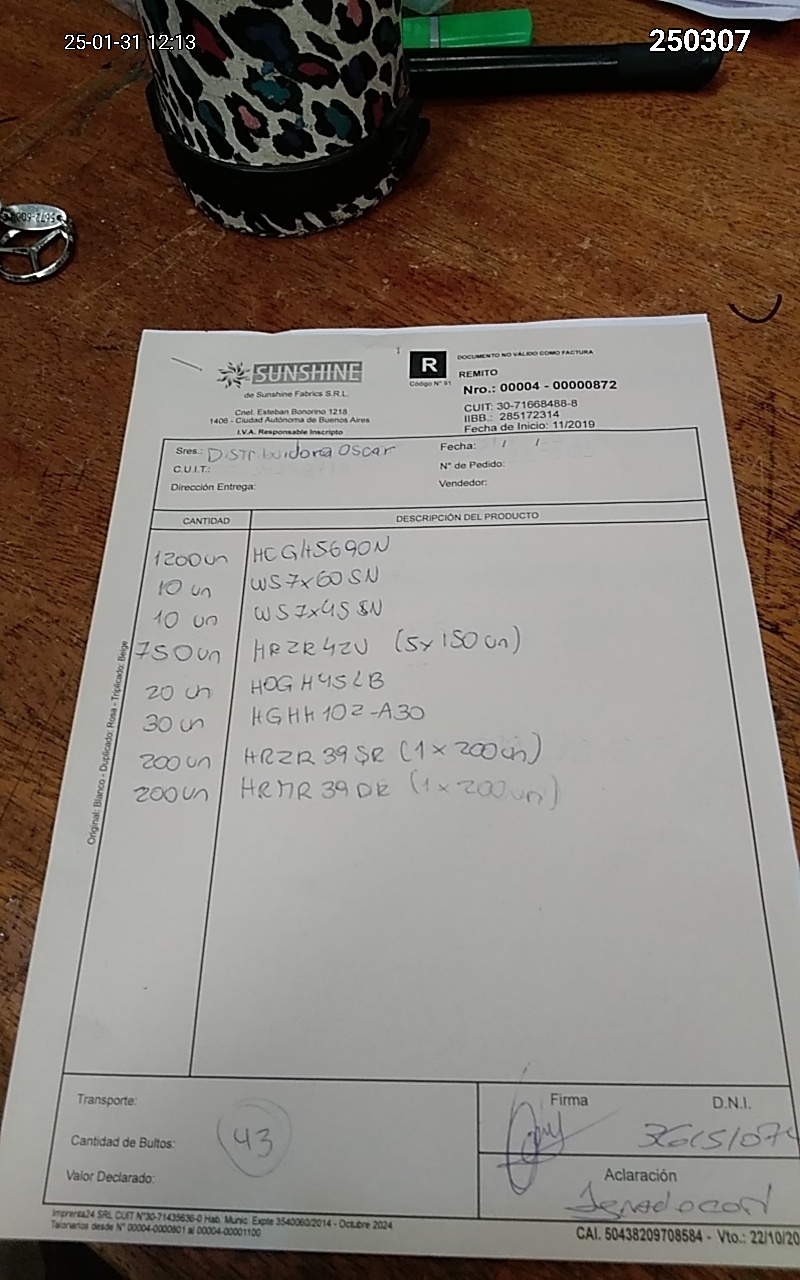 25-01-31 12:13
250307
SUNSHINE
de Sunshine Fabrics S.R.L.
Cnel. Esteban Bonorino 1218
1406 - Ciudad Autónoma de Buenos Aires
I.V.A. Responsable Inscripto
R
Código N° 91
DOCUMENTO NO VÁLIDO COMO FACTURA
REMITO
Nro.: 00004 - 00000872
CUIT: 30-71668488-8
IIBB.: 285172314
Fecha de Inicio: 11/2019
Sres.: Distribuidora Oscar
C.U.I.T.:
Dirección Entrega:
Fecha: / /
N° de Pedido:
Vendedor:
CANTIDAD DESCRIPCIÓN DEL PRODUCTO
1200 un HCGH5690N
10 un WS7x60SN
10 un WS7x45SN
750 un HRZR42U (5x150un)
20 un HOGH45LB
30 un HGHH102-A30
200 un HRZR39SR (1x200un)
200 un HRMR39DR (1x200un)
Original: Blanco - Duplicado: Rosa - Triplicado: Beige
Transporte:
Cantidad de Bultos: 43
Valor Declarado:
Firma
D.N.I.
Aclaración
Imprenta24 SRL CUIT N°30-71435636-0 Hab. Munic. Expte 3540060/2014 - Octubre 2024
Talonarios desde N° 00004-0000801 al 00004-00001100
CAI. 50438209708584 - Vto.: 22/10/20